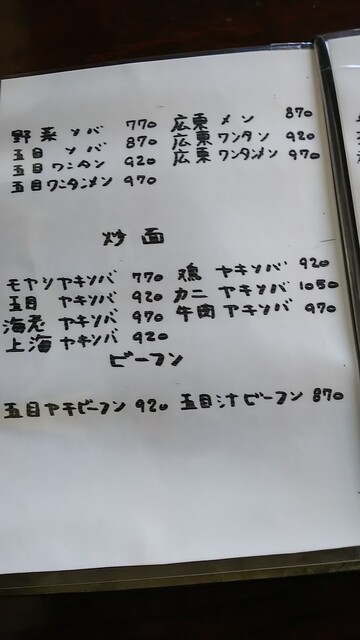 野菜 ソバ 770 広東 メン 870
五目 ソバ 870 広東 ワンタン 920
五目 ワンタン 920 広東 ワンタンメン 970
五目 ワンタンメン 970
炒面
モヤシヤキソバ 770 鶏 ヤキソバ 920
五目 ヤキソバ 920 カニ ヤキソバ 1050
海老 ヤキソバ 970 牛肉 ヤキソバ 970
上海 ヤキソバ 920
ビーフン
五目ヤキビーフン 920 五目汁ビーフン 870